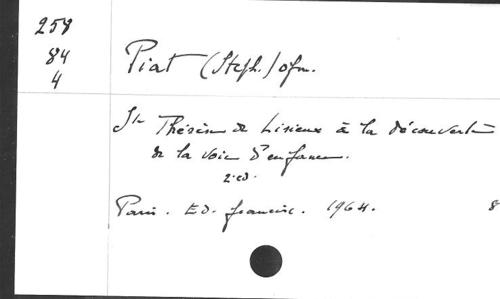 258
84
4
Piat (Steph.) ofm.
Ste Thérèse de Lisieux à la découverte
de la voie d'enfance.
2 ed.
Paris. Ed. francisc. 1964. 8